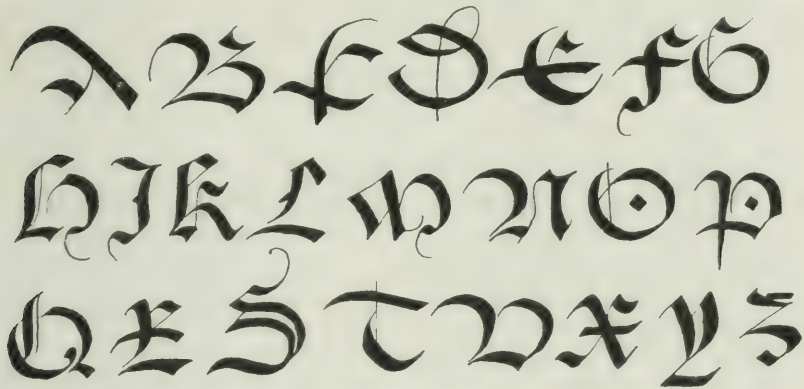 A B C D E F G
H I K L M N O P
Q R S T V X Y Z